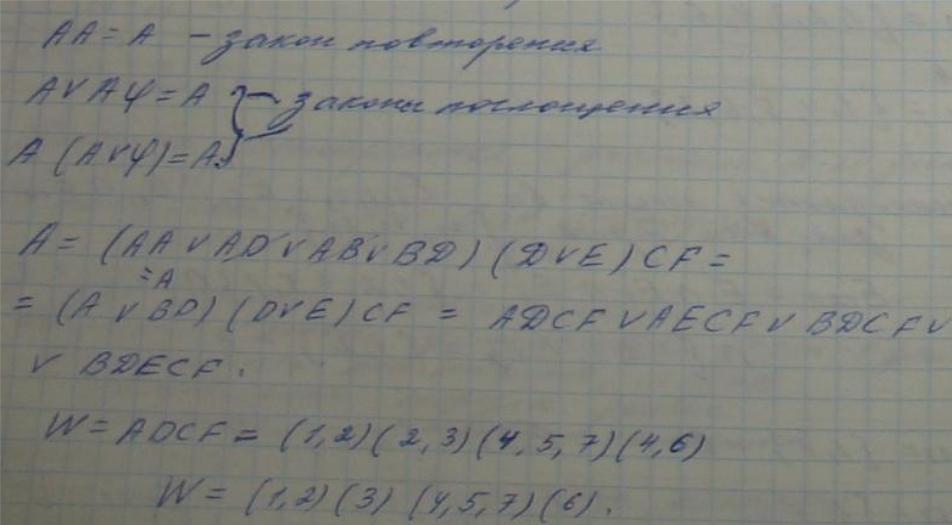 AA = A – закон повторения
A ∨ Aψ = A } законы поглощения
A (A ∨ ψ) = A
A = (AA ∨ AD ∨ AB ∨ BD) (D ∨ E) CF =
= A
= (A ∨ BD) (D ∨ E) CF = ADCF ∨ AECF ∨ BDCF ∨
∨ BDECF.
W = ADCF = (1,2) (2,3) (4,5,7) (4,6)
W = (1,2) (3) (4,5,7) (6).